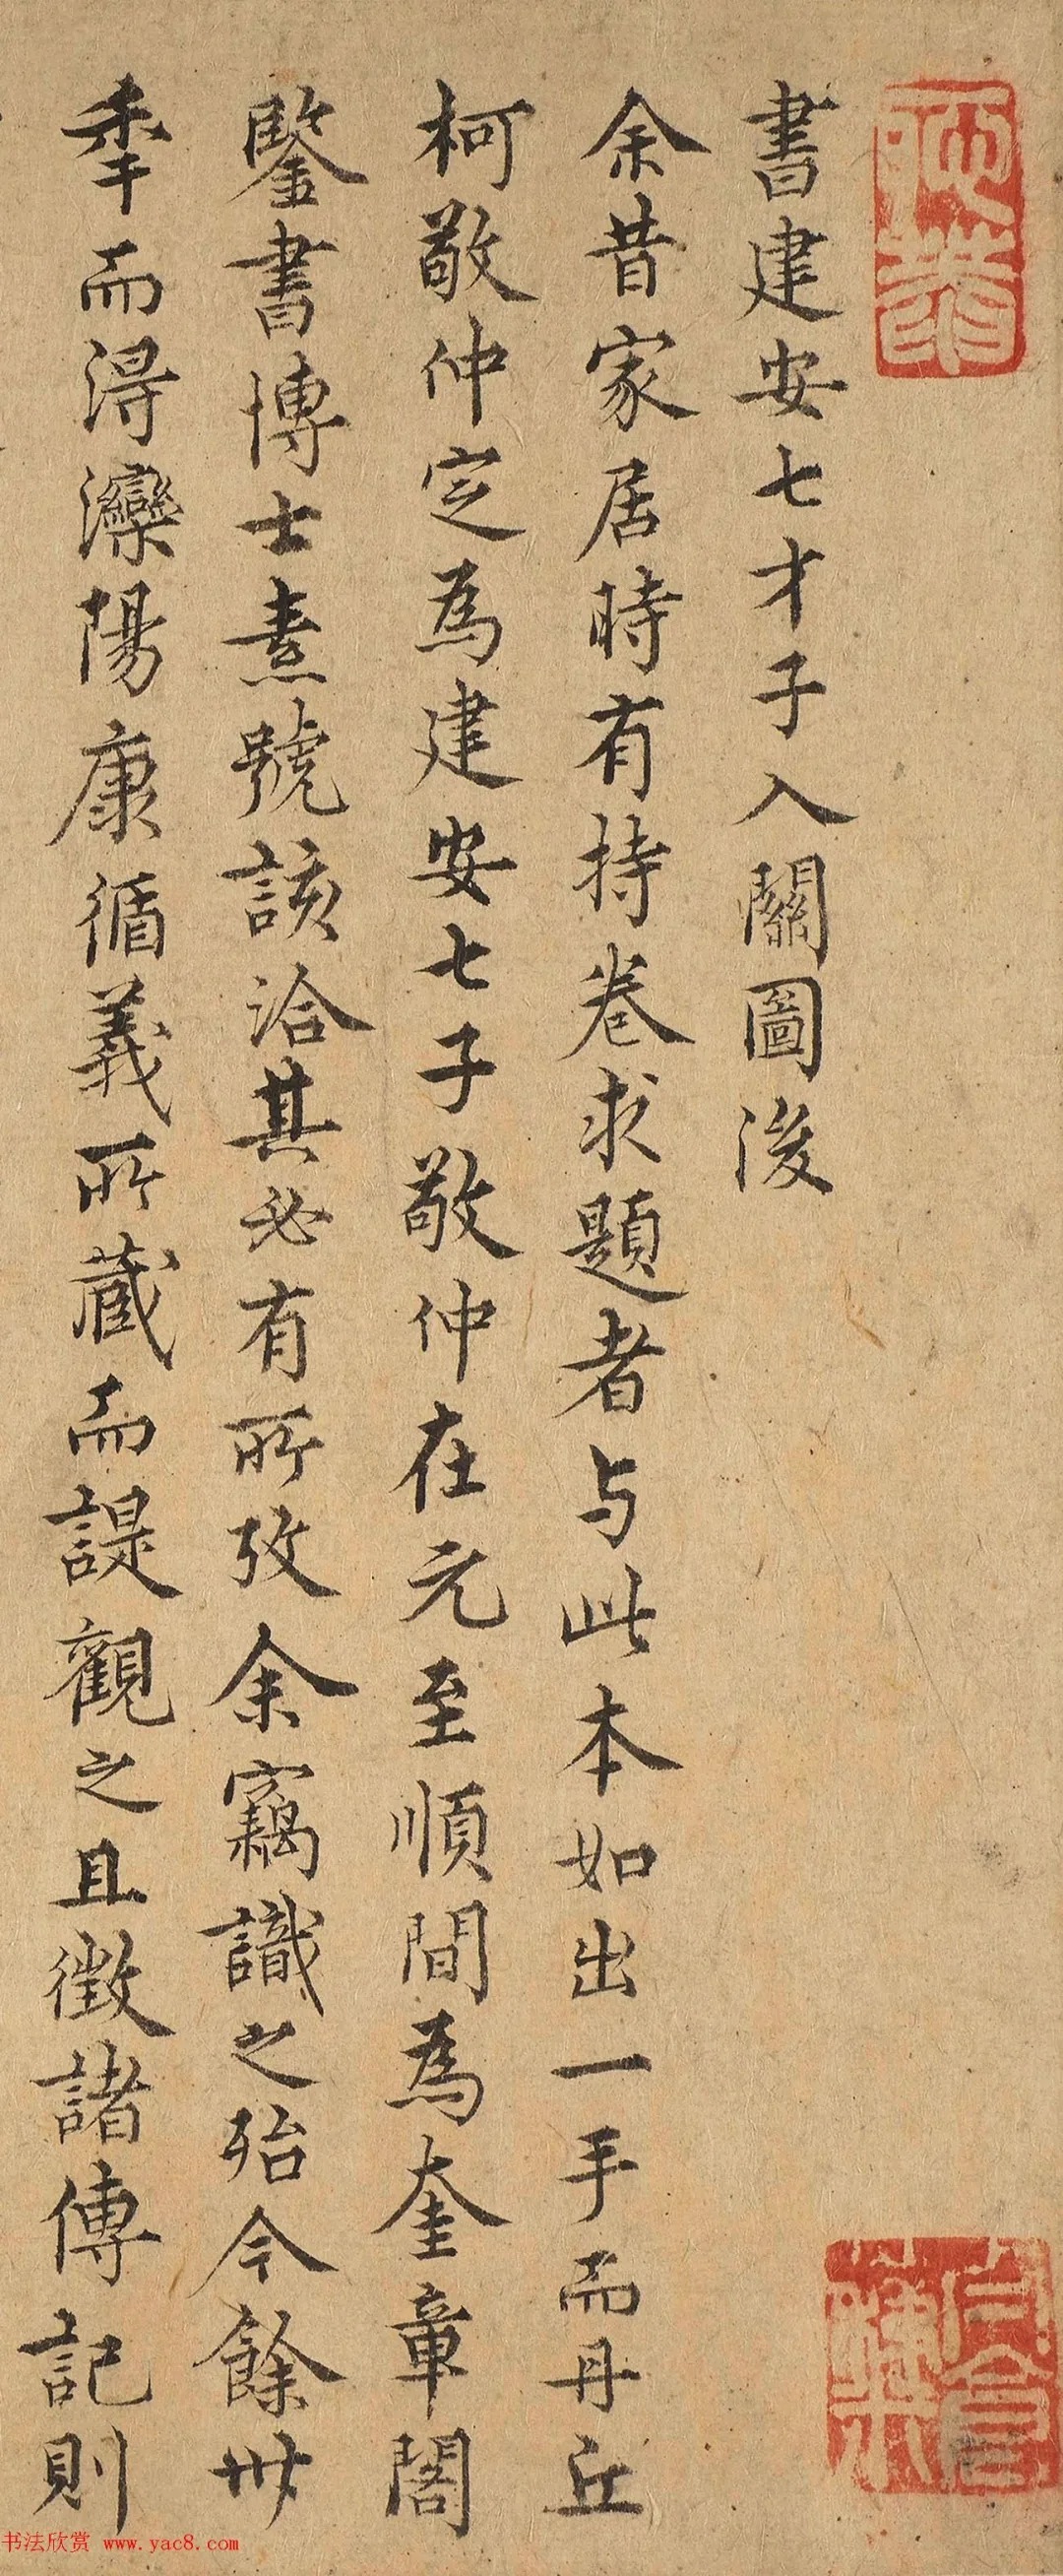 書建安七才子入關圖後
余昔家居時有持卷求題者与此本如出一手而丹丘
柯敬仲定為建安七子敬仲在元至順間為奎章閣
鑒書博士素號該洽其必有所攷余竊識之殆今餘卅
秊而得灤陽康循義所藏而諟觀之且徵諸傳記則
书法欣赏 www.yac8.com